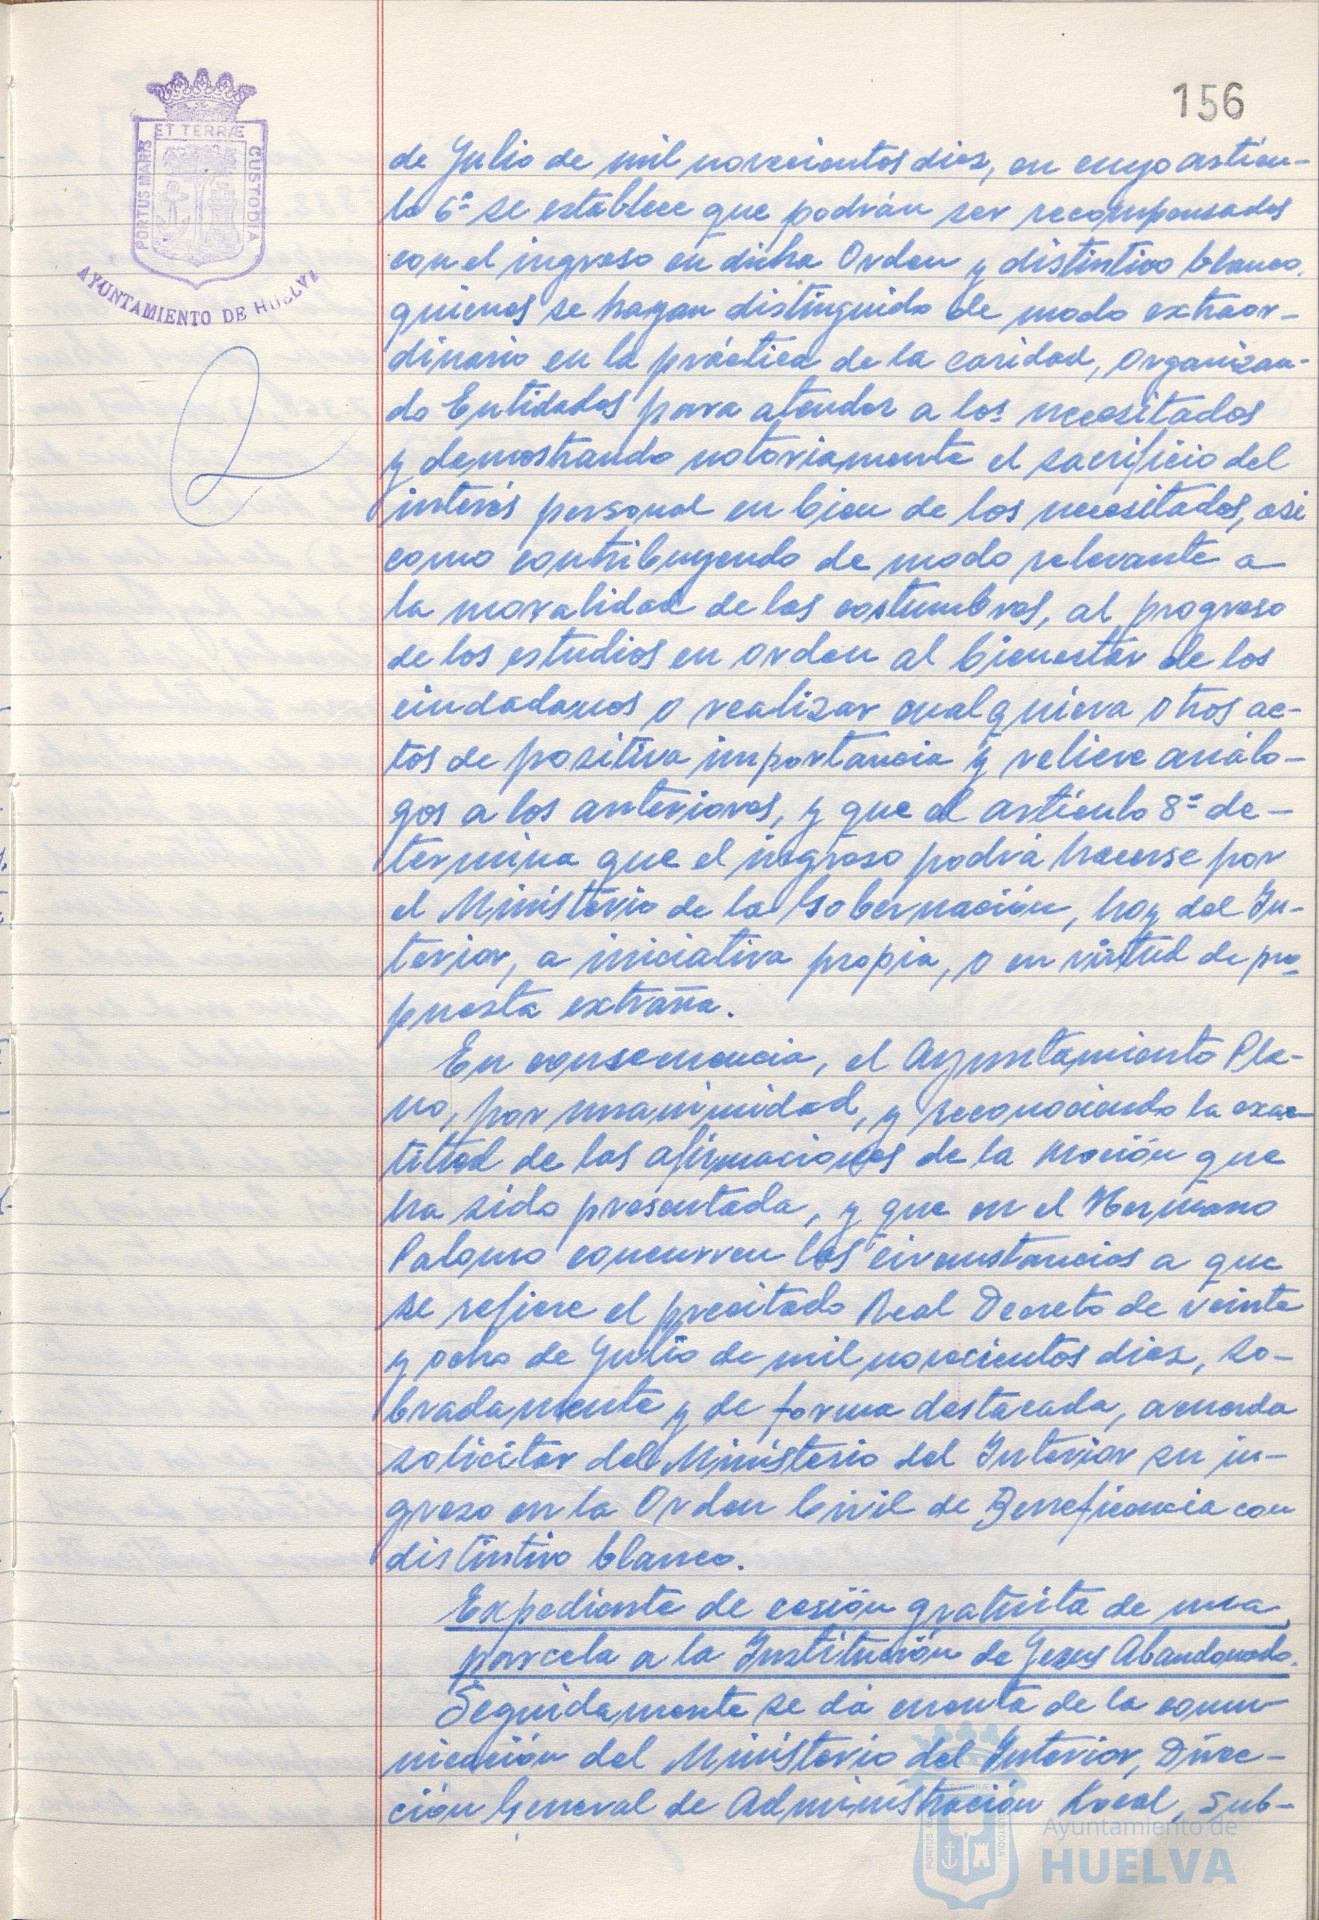 156
ET TERRÆ
PORTUS MARIS
CUSTODIA
AYUNTAMIENTO DE HUELVA
de Julio de mil novecientos diez, en cuyo artícu-
lo 6º se establece que podrán ser recompensados
con el ingreso en dicha Orden y distintivo blanco,
quienes se hayan distinguido de modo extraor-
dinario en la práctica de la caridad, organizan-
do Entidades para atender a los necesitados
y demostrando notoriamente el sacrificio del
interés personal en bien de los necesitados, así
como contribuyendo de modo relevante a
la moralidad de las costumbres, al progreso
de los estudios en orden al bienestar de los
ciudadanos o realizar cualquiera otros ac-
tos de positiva importancia y relieve análo-
gos a los anteriores, y que el artículo 8º de-
termina que el ingreso podrá hacerse por
el Ministerio de la Gobernación, hoy del In-
terior, a iniciativa propia, o en virtud de pro-
puesta extraña.
En consecuencia, el Ayuntamiento Ple-
no, por unanimidad, y reconociendo la exac-
titud de las afirmaciones de la Moción que
ha sido presentada, y que en el Hermano
Palomo concurren las circunstancias a que
se refiere el precitado Real Decreto de veinte
y ocho de Julio de mil novecientos diez, so-
bradamente y de forma destacada, acuerda
solicitar del Ministerio del Interior su in-
greso en la Orden Civil de Beneficencia con
distintivo blanco.
Expediente de cesión gratuita de una
parcela a la Institución de Jesus Abandonado.
Seguidamente se dá cuenta de la comu-
nicación del Ministerio del Interior, Direc-
ción General de Administración Local, Sub-
Ayuntamiento de
HUELVA